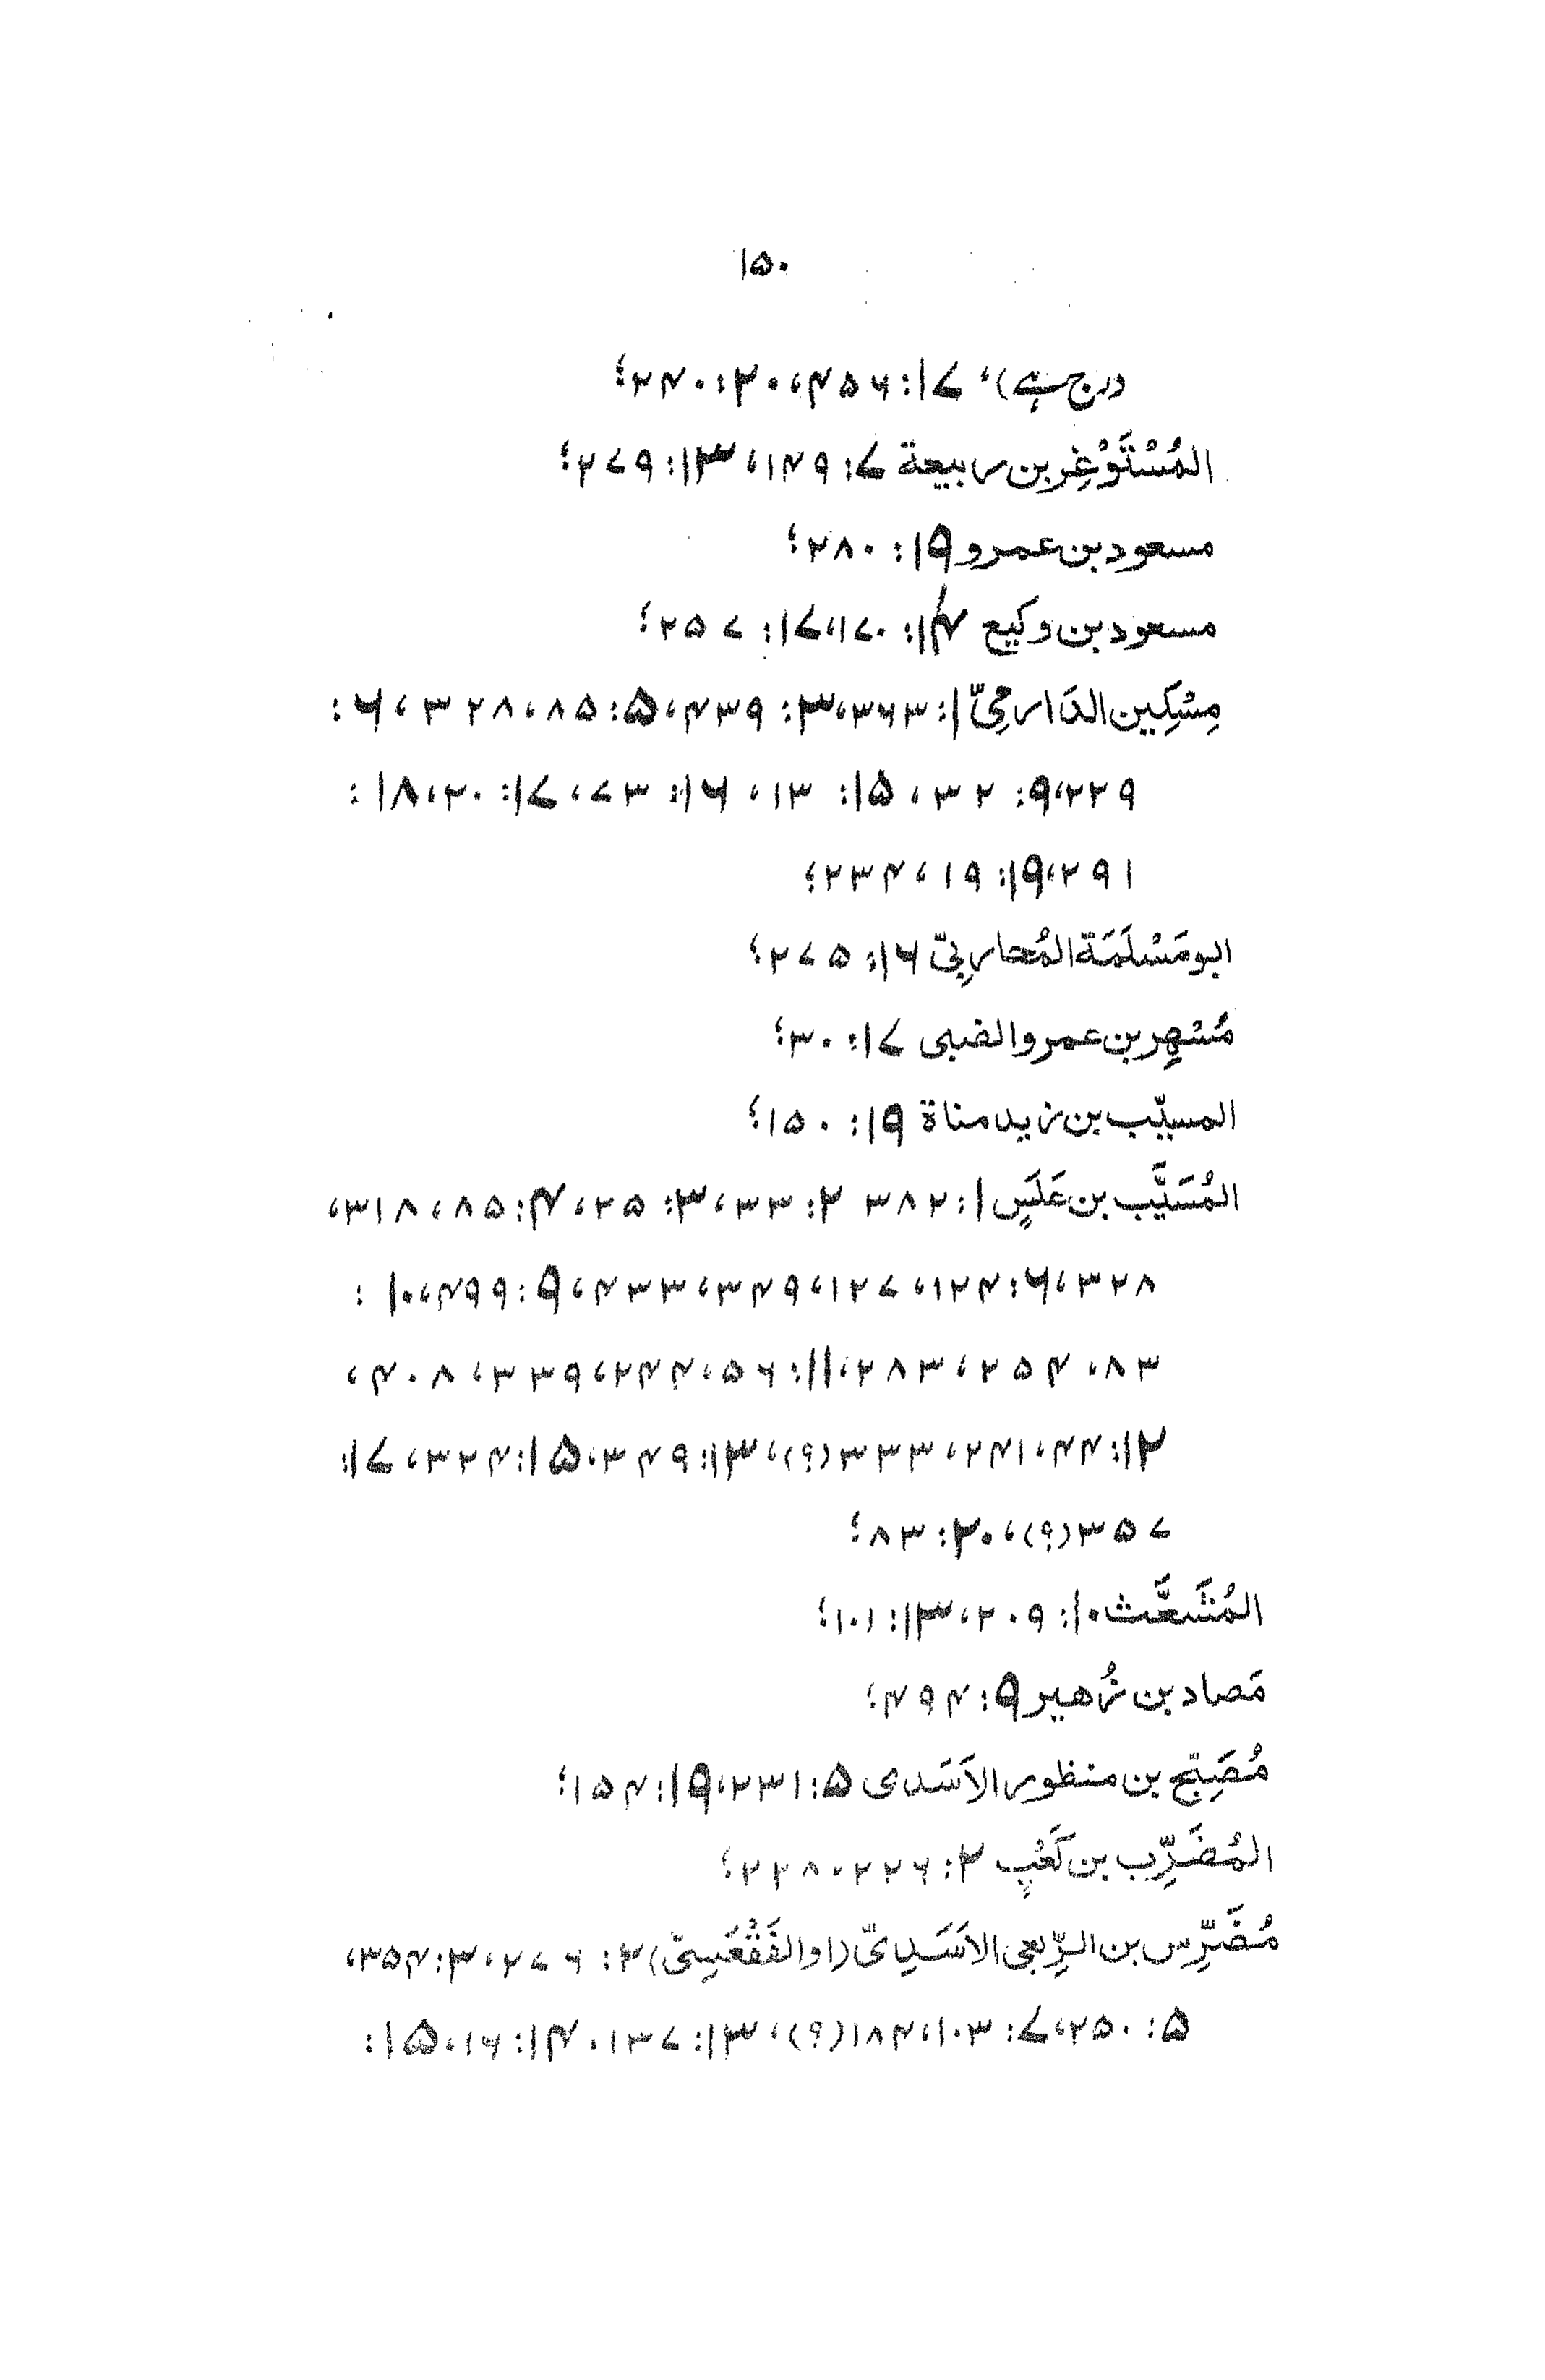 ۱۵۰
درج ہے)، ۱۷: ۴۵۶، ۲۰: ۲۴۰؛
المُسْتَوْغِر بن ربیعة ۷: ۱۴۹، ۱۳: ۲۷۹؛
مسعود بن عمرو ۱۹: ۲۸۰؛
مسعود بن وکیع ۱۴: ۱۷۰، ۱۷: ۲۵۷؛
مِسْکِین الدَارمِیّ ۱: ۳۶۳، ۳: ۴۳۹، ۵: ۸۵، ۳۲۸، ۶:
۲۲۹، ۹: ۳۲، ۱۵: ۱۳، ۱۶: ۷۳، ۱۷: ۲۰، ۱۸:
۲۹۱، ۱۹: ۱۹، ۲۳۴؛
ابو مَسْلَمَة المُحاربِیّ ۱۶: ۲۷۵؛
مُسْهِر بن عمرو الضبی ۱۷: ۳۰؛
المسیّب بن زید مناة ۱۹: ۱۵۰؛
المُسَیَّب بن عَلَسٍ ۱: ۳۸۲ ۲: ۳۳، ۳: ۲۵، ۴: ۸۵، ۳۱۸،
۳۲۸، ۶: ۱۲۴، ۱۲۷، ۳۴۹، ۴۳۳، ۹: ۴۹۹، ۱۰:
۸۳، ۲۵۴، ۲۸۳، ۱۱: ۵۶، ۲۴۴، ۳۳۹، ۴۰۸،
۱۲: ۴۴، ۲۴۱، ۳۳۳(؟)، ۱۳: ۳۴۹، ۱۵: ۳۲۴، ۱۷:
۳۵۷(؟)، ۲۰: ۸۳؛
المُشَعَّث ۱۰: ۲۰۹، ۱۳: ۱۰۱؛
مَصاد بن زُهیر ۹: ۴۹۴؛
مُصَبِّح بن منظور الاَسَدی ۵: ۲۳۱، ۱۹: ۱۵۴؛
المُضَرِّب بن کَعْبٍ ۲: ۲۲۶، ۲۲۸؛
مُضَرِّس بن الرِّبعی الاَسَدِیّ (او الفَقْعَسِیّ) ۲: ۲۷۶، ۳: ۳۵۴،
۵: ۲۵۰، ۷: ۱۰۳، ۱۸۴(؟)، ۱۳: ۱۳۷، ۱۴: ۱۶، ۱۵: